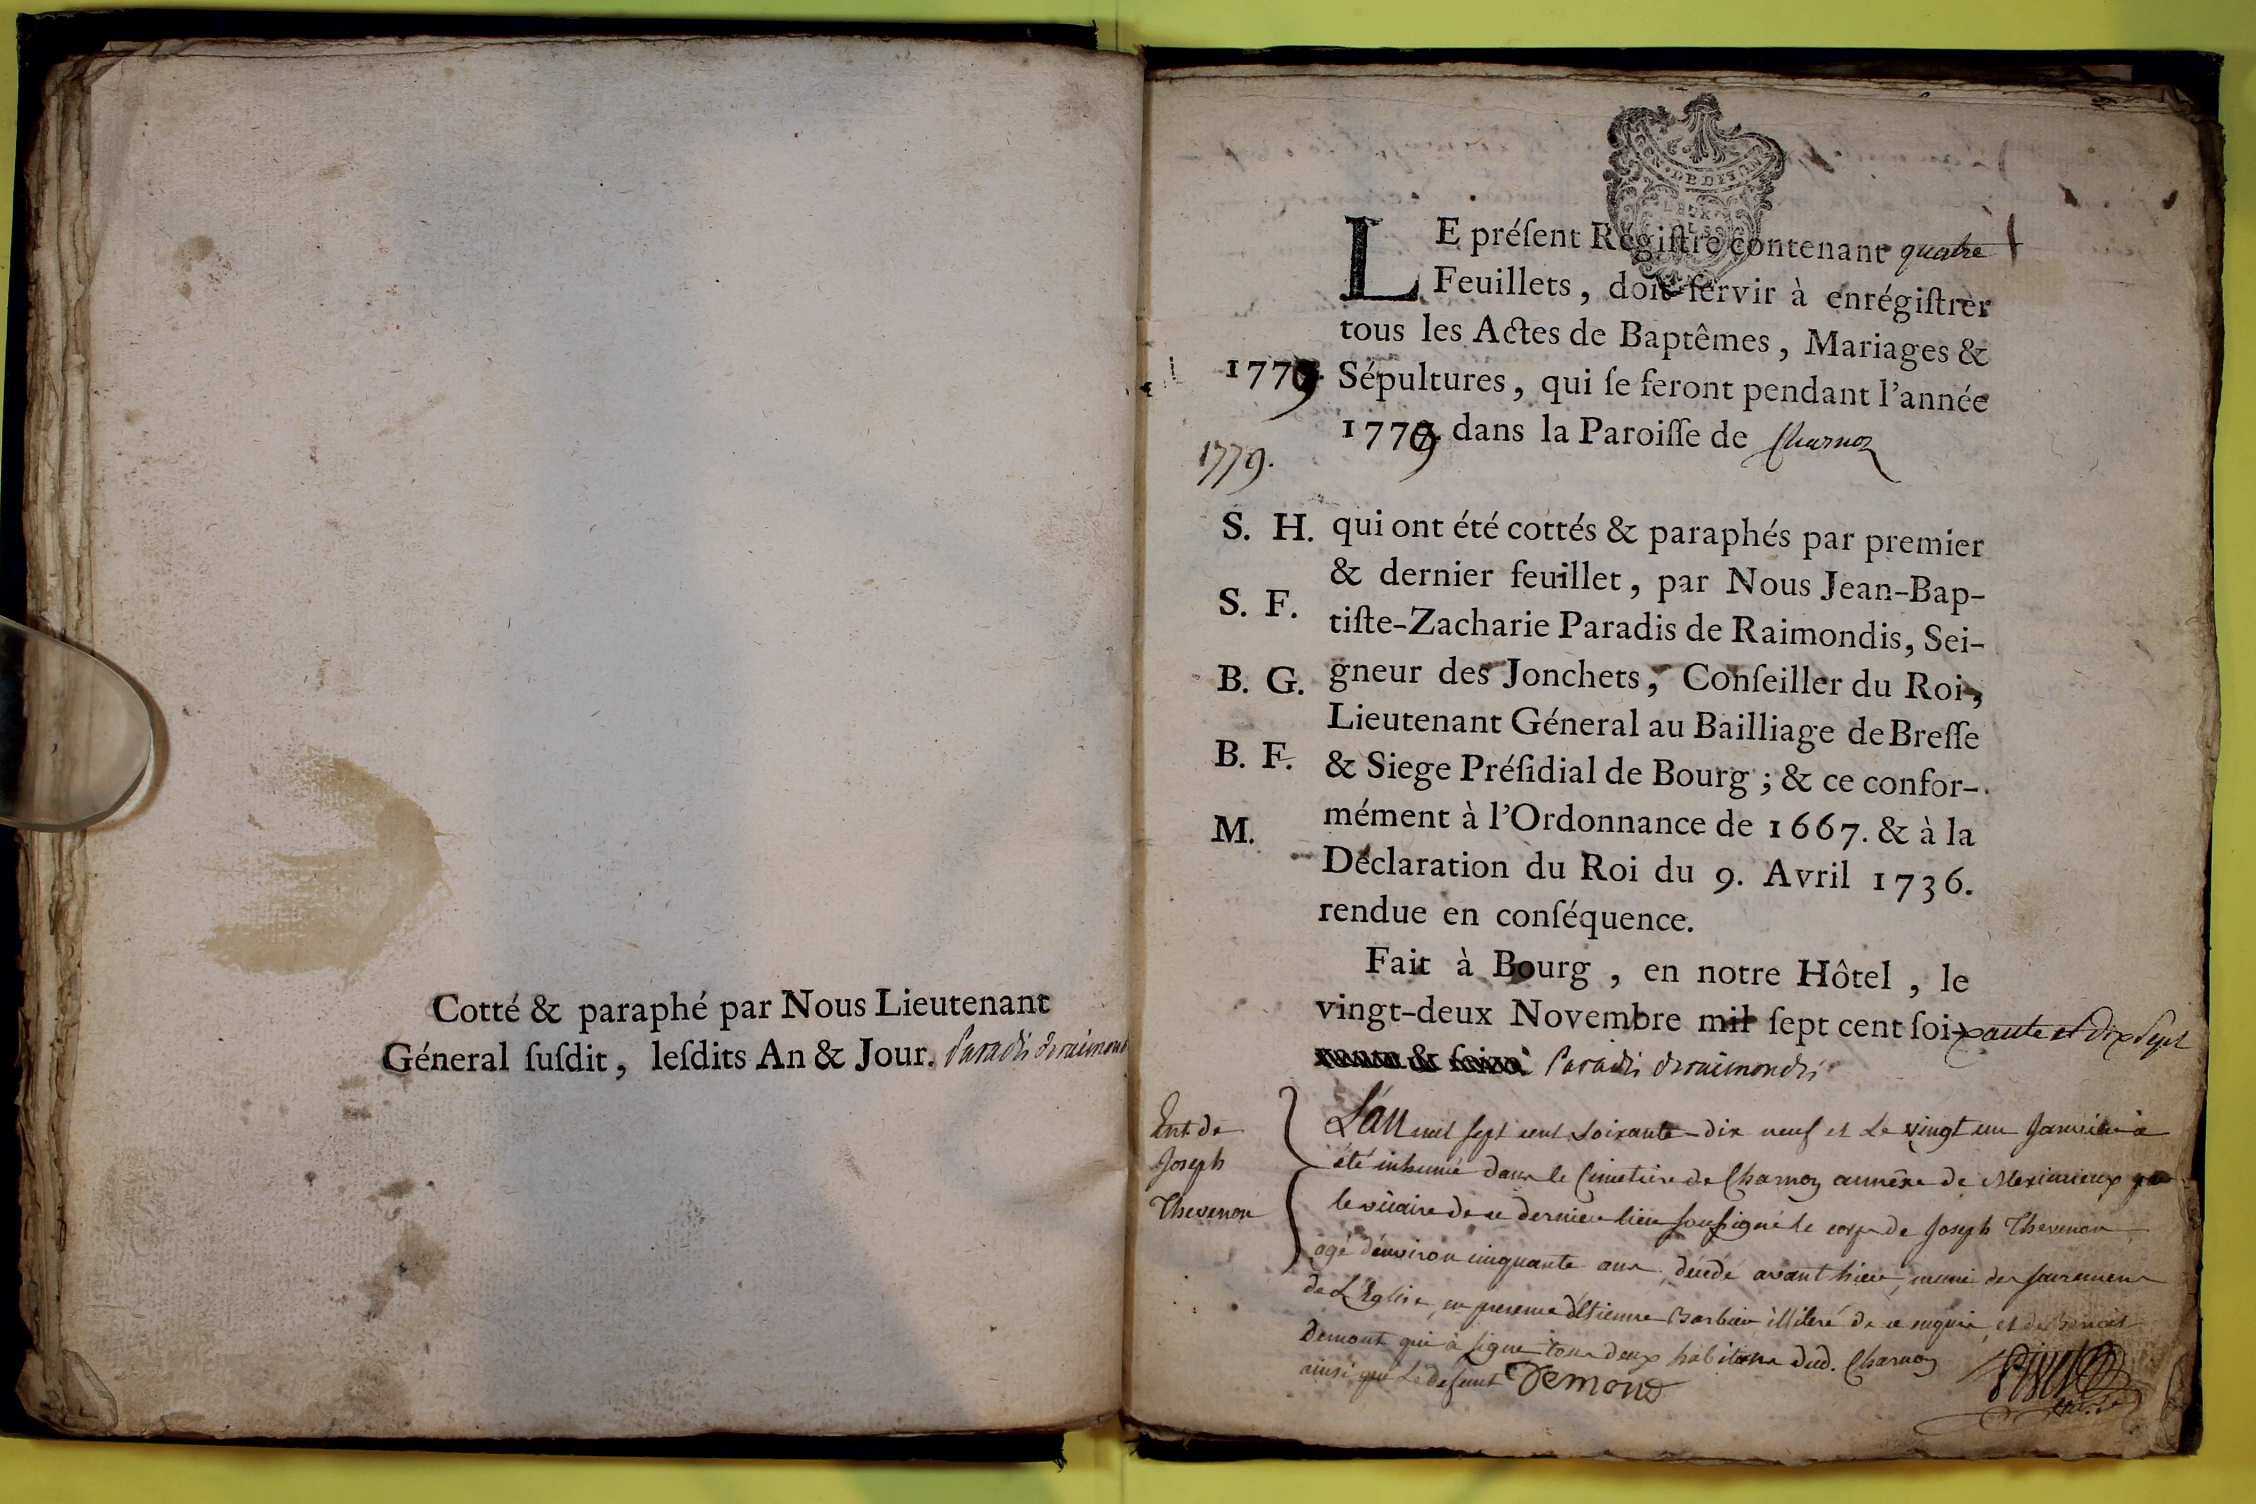 Cotté & paraphé par Nous Lieutenant
Géneral ſuſdit, leſdits An & Jour. Paradis deraimondis
LE préſent Regiſtre contenant quatre
Feuillets, doit ſervir à enrégiſtrer
tous les Actes de Baptêmes, Mariages &
1779. Sépultures, qui ſe feront pendant l'année
1779. dans la Paroiſſe de Charnoz
1779.
S. H. qui ont été cottés & paraphés par premier
& dernier feuillet, par Nous Jean-Bap-
S. F. tiſte-Zacharie Paradis de Raimondis, Sei-
B. G. gneur des Jonchets, Conſeiller du Roi,
Lieutenant Géneral au Bailliage de Breſſe
B. F. & Siege Préſidial de Bourg ; & ce confor-
M. mément à l'Ordonnance de 1667. & à la
Déclaration du Roi du 9. Avril 1736.
rendue en conſéquence.
Fait à Bourg, en notre Hôtel, le
vingt-deux Novembre mil ſept cent ſoixante et dix sept
Paradis deraimondis
Ent. de
Joseph
Thevenon
L'an mil sept cent soixante-dix neuf et le vingt un Janvier à
été inhumé dans le Cimetiere de Charnoz annexe de Meximieux par
le vicaire de ce dernier lieu soussigné le corps de Joseph Thevenon
agé d'environ cinquante ans, décédé avant hier, muni des sacremens
de L'Eglise, en presence d'Etienne Barbier illiteré de ce requis, et de Benoit
Demont qui à signé tous deux habitans dud. Charnoz
ainsi que le defunt Demond